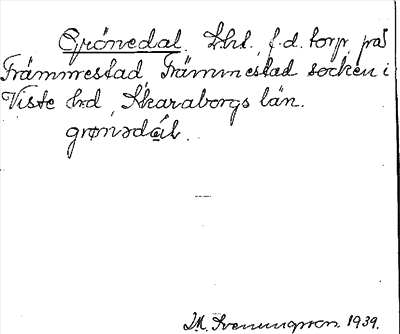 Grönedal. Lht. f.d. torp på
Främmestad, Främmestad socken i
Viste hd, Skaraborgs län.
grønədά̱l.
M. Svenungsson. 1939.